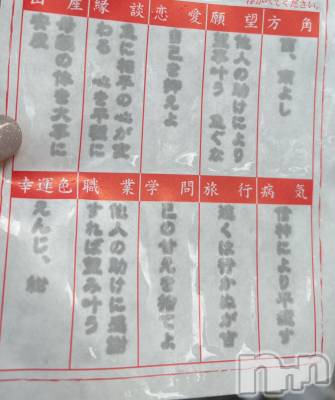 方角
西、東よし
願望
他人の助けにより
望事叶う 急ぐな
恋愛
自己を抑えよ
縁談
急に相手の心が変
わる 心を平穏に
出産
母親の体を大事に
安産
病気
信神により平癒す
旅行
遠くは行かぬが吉
学問
己の甘えを捨てよ
職業
他人の助けに感謝
すれば望み叶う
幸運色
えんじ、紺